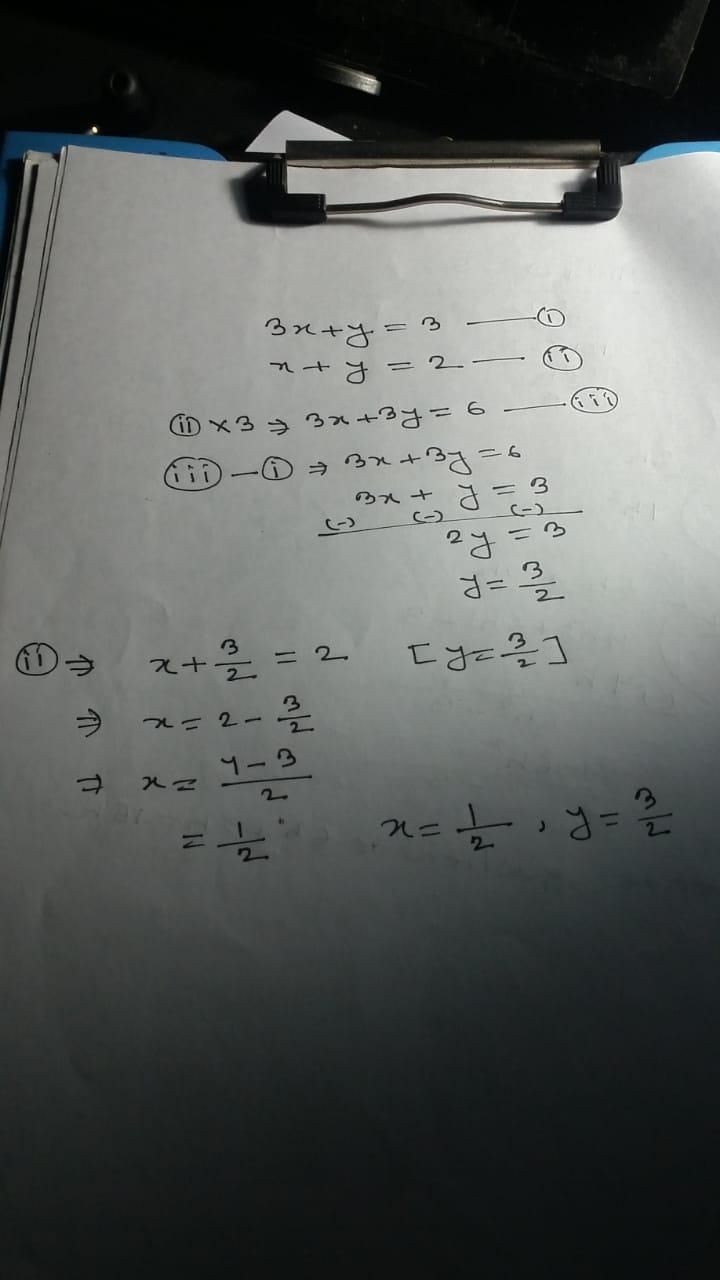 3x+y = 3 —— (i)
x + y = 2 —— (ii)
(ii) ×3 ⇒ 3x+3y = 6 —— (iii)
(iii) – (i) ⇒ 3x+3y = 6
3x + y = 3
(-) (-) (-)
2y = 3
y = 3/2
(ii) ⇒ x + 3/2 = 2 [y = 3/2]
⇒ x = 2 - 3/2
⇒ x = 4-3/2
= 1/2 x = 1/2 , y = 3/2